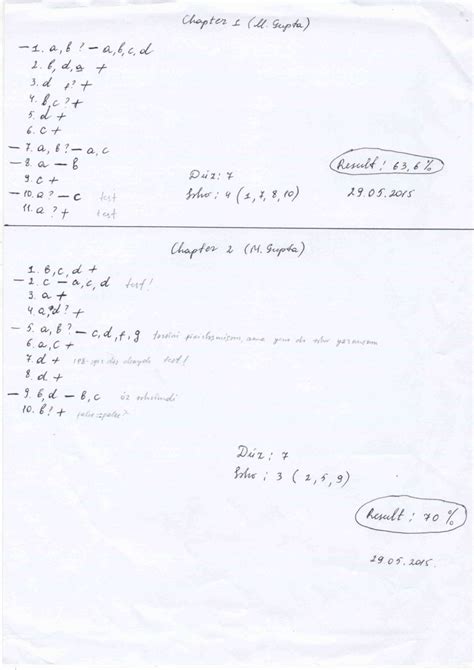 Chapter 1 (M. Gupta)
– 1. a, b ? – a, b, c, d
2. b, d, a +
3. d +? +
4. b, c ? +
5. d +
6. c +
– 7. a, b ? – a, c
– 8. a – b
9. c +
– 10. a ? – c test
11. a ? + test
Düz: 7
Səhv: 4 (1, 7, 8, 10)
Result: 63,6%
29.05.2015
Chapter 2 (M. Gupta)
1. b, c, d +
– 2. c – a, c, d test!
3. a +
4. a, d ? +
– 5. a, b ? – c, d, f, g
6. a, c +
7. d + test!
8. d +
– 9. b, d – b, c öz səhvimdi
10. b ? +
Düz: 7
Səhv: 3 (2, 5, 9)
Result: 70%
29.05.2015.